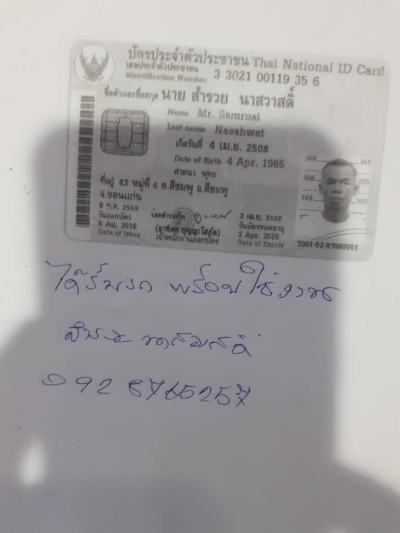 บัตรประจำตัวประชาชน Thai National ID Card
เลขประจำตัวประชาชน
Identification Number 3 3021 00119 35 6
ชื่อตัวและชื่อสกุล นาย สำรวย นาสวาสดิ์
Name Mr. Samruai
Last name Nasahwat
เกิดวันที่ 4 เม.ย. 2508
Date of Birth 4 Apr. 1965
ศาสนา พุทธ
ที่อยู่ 43 หมู่ที่ 6 ต.สีชมพู อ.สีชมพู
จ.ขอนแก่น
6 ก.ค. 2559
วันออกบัตร
6 Jul. 2016
Date of Issue
เจ้าพนักงานออกบัตร
3 เม.ย. 2568
วันบัตรหมดอายุ
3 Apr. 2025
Date of Expiry
ได้รับรถ พร้อมใช้งาน
092 8765257